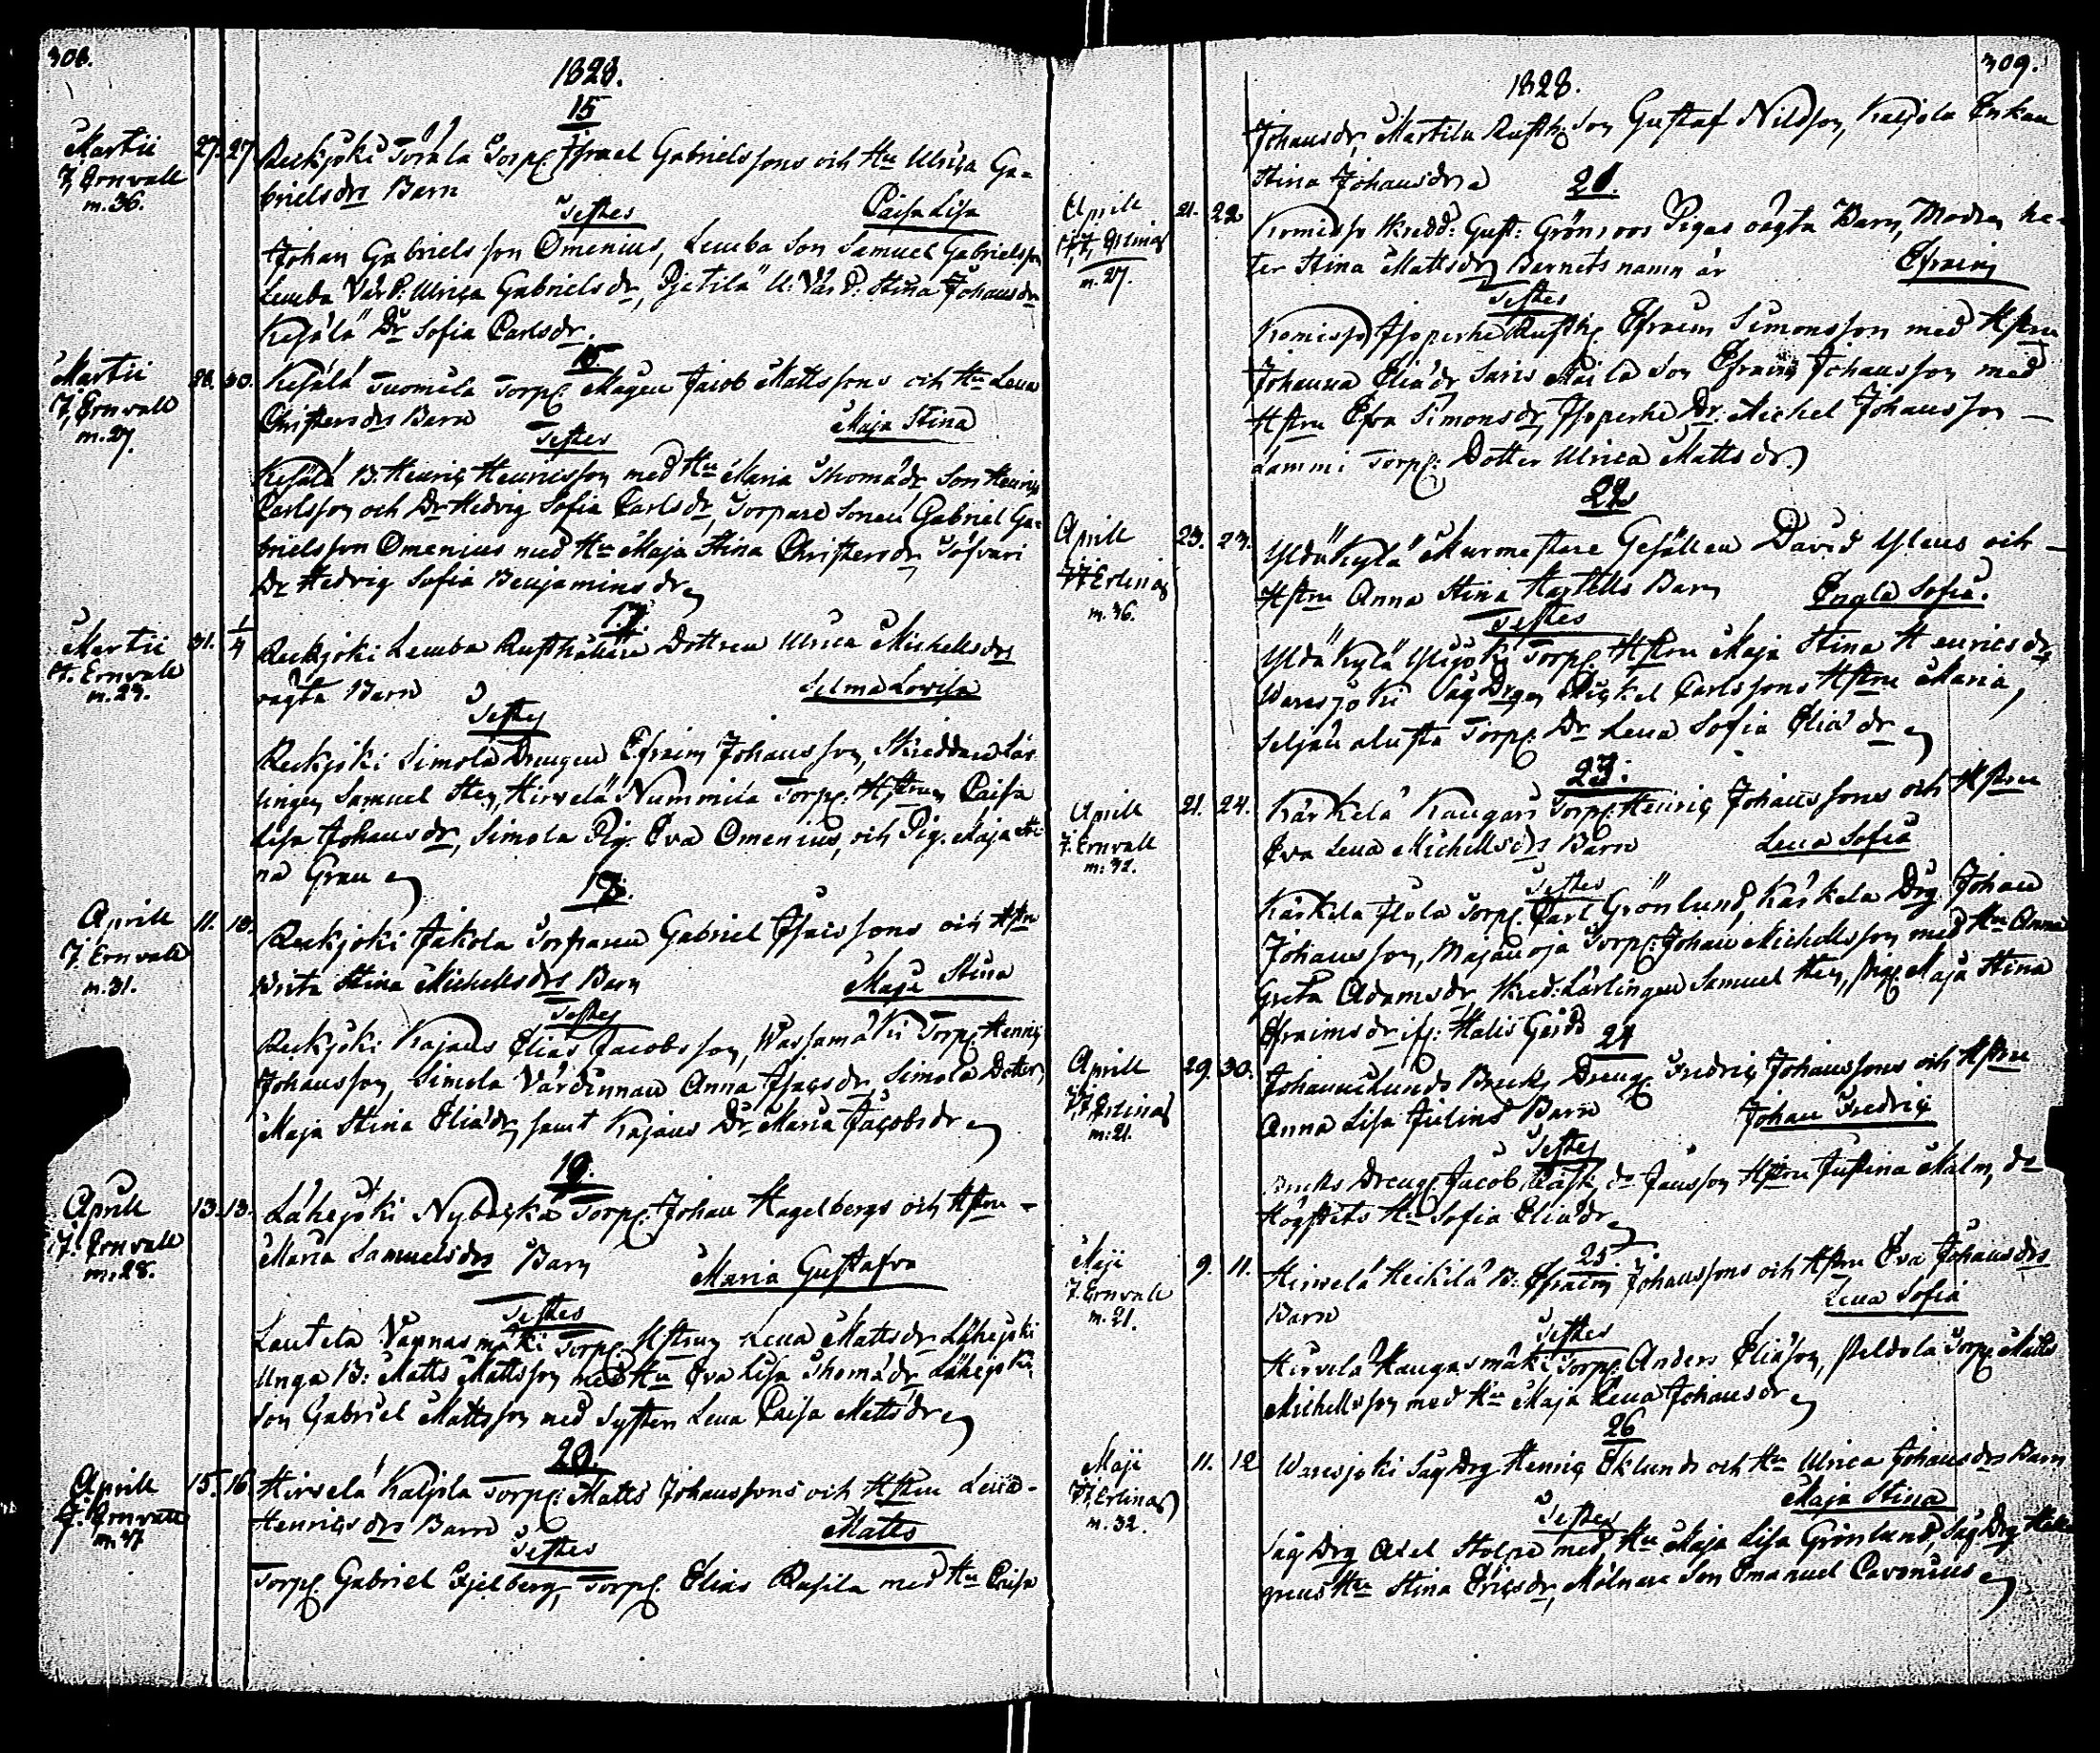 308.
1828.
15
Martii 27. 27 Rekijoki Torila Torp. Israel Gabrielssons och Hu Ulrica Ga=
J, Ernvall brielsdrs Barn
m. 36. Testes Caisa Lisa
Johan Gabrielsson Omenius, Lemba Son Samuel Gabrielsson
Lemba Vär P: Ulrica Gabrielsdr, Stina Johansdr
Kesälä Dr Sofia Carlsdr.
16.
Martii 28. 30. Kesälä Tuomela Torp. Mågen Jacob Mattssons och Hu Lena
J, Ernvall Christersdrs Barn Maja Stina
m. 27. Testes
Kesälä B. Henric Henricsson med Hu Maria Thomädr Son Henric
Carlsson och Dr Hedvig Sofia Carlsdr, Torpare Sonen Gabriel Ga=
brielsson Omenius med Hu Maja Stina Christersdr
Dr Hedvig Sofia Benjaminsdr
17.
Martii 31. 1/4 Rekijoki Lemba Rusthållare Dottren Ulrica Michelsdrs
J. Ernvall oägta Barn Selma Lovisa
m. 23. Testes
Rekijoki Simola Drengen Efraim Johansson, Skreddare Lär
lingen Samuel Sten, Hirvelä Nummila Torp. Hstrun Caisa
Lisa Johansdr, Simola Pig. Eva Omenius, och Pig. Maja Sti
na Gran
18.
Aprill 11. 13. Rekijoki Jakola Torparen Gabriel Isaissons och Hstru
J. Ernvall Brita Stina Michelsdrs Barn Maja Stina
m. 31. Testes
Rekijoki Kajans Elias Jacobsson, Wassamäki Torp. Henric
Johansson, Simola Värdinnan Anna Isacsdr, Simola Dotter
Maja Stina Eliädr samt Kajans Dr Maria Jacobsdr
19.
Aprill 13. 13. Lähejoki Nybacka Torp. Johan Hagelbergs och Hstru
J. Ernvall Maria Samuelsdrs Barn Maria Gustafva
m. 28. Testes
Lautela Torp. Hstrun Lena Mattsdr Lähejoki
Unga B: Matts Mattsson med Hu Eva Lisa Thomädr Lähejoki
Son Gabriel Mattsson med Systern Lena Caisa Mattsdr
20.
Aprill 15. 16. Hirvelä Kaljola Torp. Matts Johanssons och Hstru Lena
J. Ernvall Henricsdrs Barn Matts
m. 47 Testes
Torp. Gabriel Fjelberg, Torp. Elias Rasila med Hu Caisa
309.
1828.
Johansdr, Martila Rusth. Son Gustaf Nilsson, Kaljola Enkan
Stina Johansdr
21.
Aprill 21. 22 Komisso Skredd: Gust: Grönroos Pigas oägta Barn, Modren he=
ter Stina Mattsdr Barnets namn är Efraim
m. 27. Testes
Komisso Isoperhe Rusth. Efraim Simonsson med Hstru
Johanna Eliädr Saris Son Efraim Johansson med
Hstru Efva Simonsdr, Isoperhe Dr. Michel Johansson
Lammi Torp: Dotter Ulrica Mattsdr.
22
Aprill 23. 23. Yldükylä Murmestare Gesällen David Ylens och
Hstru Anna Stina Hartells Barn Engla Sofia.
m. 36. Testes
Yldükylä Ylijoki Torp. Hstru Maja Stina Henricsdr,
Waresjoki Såg Drgn Mickel Carlssons Hstru Maria,
Seljänalusta Torp. Dr Lena Sofia Eliädr
23.
Aprill 21. 24. Kärkelä Kangars Torp. Henric Johanssons och Hstru
J. Ernvall Eva Lena Michelsdrs Barn Lena Sofia
m. 32. Testes
Kärkela Torp. Carl Grönlund, Kärkela Drg Johan
Johansson, Majanoja Torp. Johan Michelsson med Hu Anna
Greta Adamsdr, Skred: Lärlingen Samuel Sten, Pig. Maja Stina
Efraimsdr ifr: Halis Gård
24
Aprill 29. 30. Johannislunds Bruks Dreng. Fredric Johanssons och Hstru
Anna Lisa Julins Barn Johan Fredric
m. 21. Testes
Bruks Dreng. Jacob Rask, do Jansson Hstru Justina Malm, do
Högstets Hu Sofia Eliädr
25.
Maji 9. 11. Hirvelä Heikilä B. Efraim Johanssons och Hstru Eva Johansdrs
J. Ernvall Barn Lena Sofia
m. 21. Testes
Hirvelä Kangasmäki Torp. Anders Eliäson, Peldola Torp. Matts
Michelsson med Hu Maja Lena Johansdr
26
Maji 11. 12 Waresjoki Såg Drg Henric Eklunds och Hu Ulrica Johansdrs Barn
Maja Stina
m. 32. Testes
Såg Drg Axel Stolpe med Hu Maja Lisa Grönlund, Såg Drg
Hu Stina Ericsdr, Mölnare Son Emanuel Cavonius